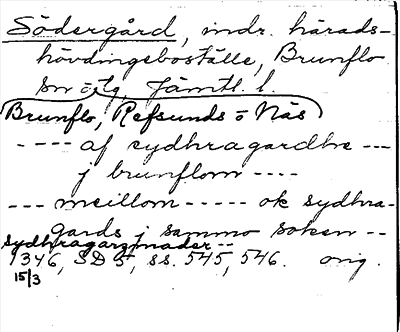 Södergård, indr. härads-
hövdingeboställe, Brunflo
sn o tg, Jämtl. l.
Brunflo, Refsunds o Näs
---- af sydhragardhe ---
j brunflom ----
--- meillom ----- ok sydhra-
gards j sammo soken --
sydhragarzmader --
1346, SD 5, ss. 545, 546. orig.
15/3